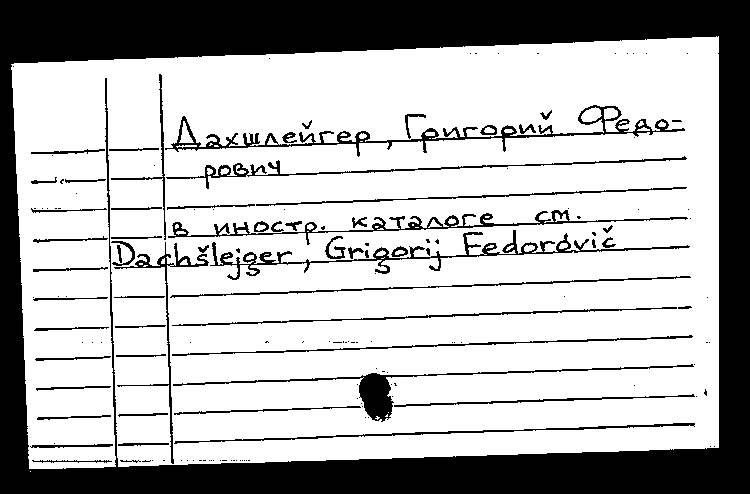 Дахшлейгер, Григорий Федо-
рович
в иностр. каталоге см.
Dachšlejger, Grigorij Fedorovič